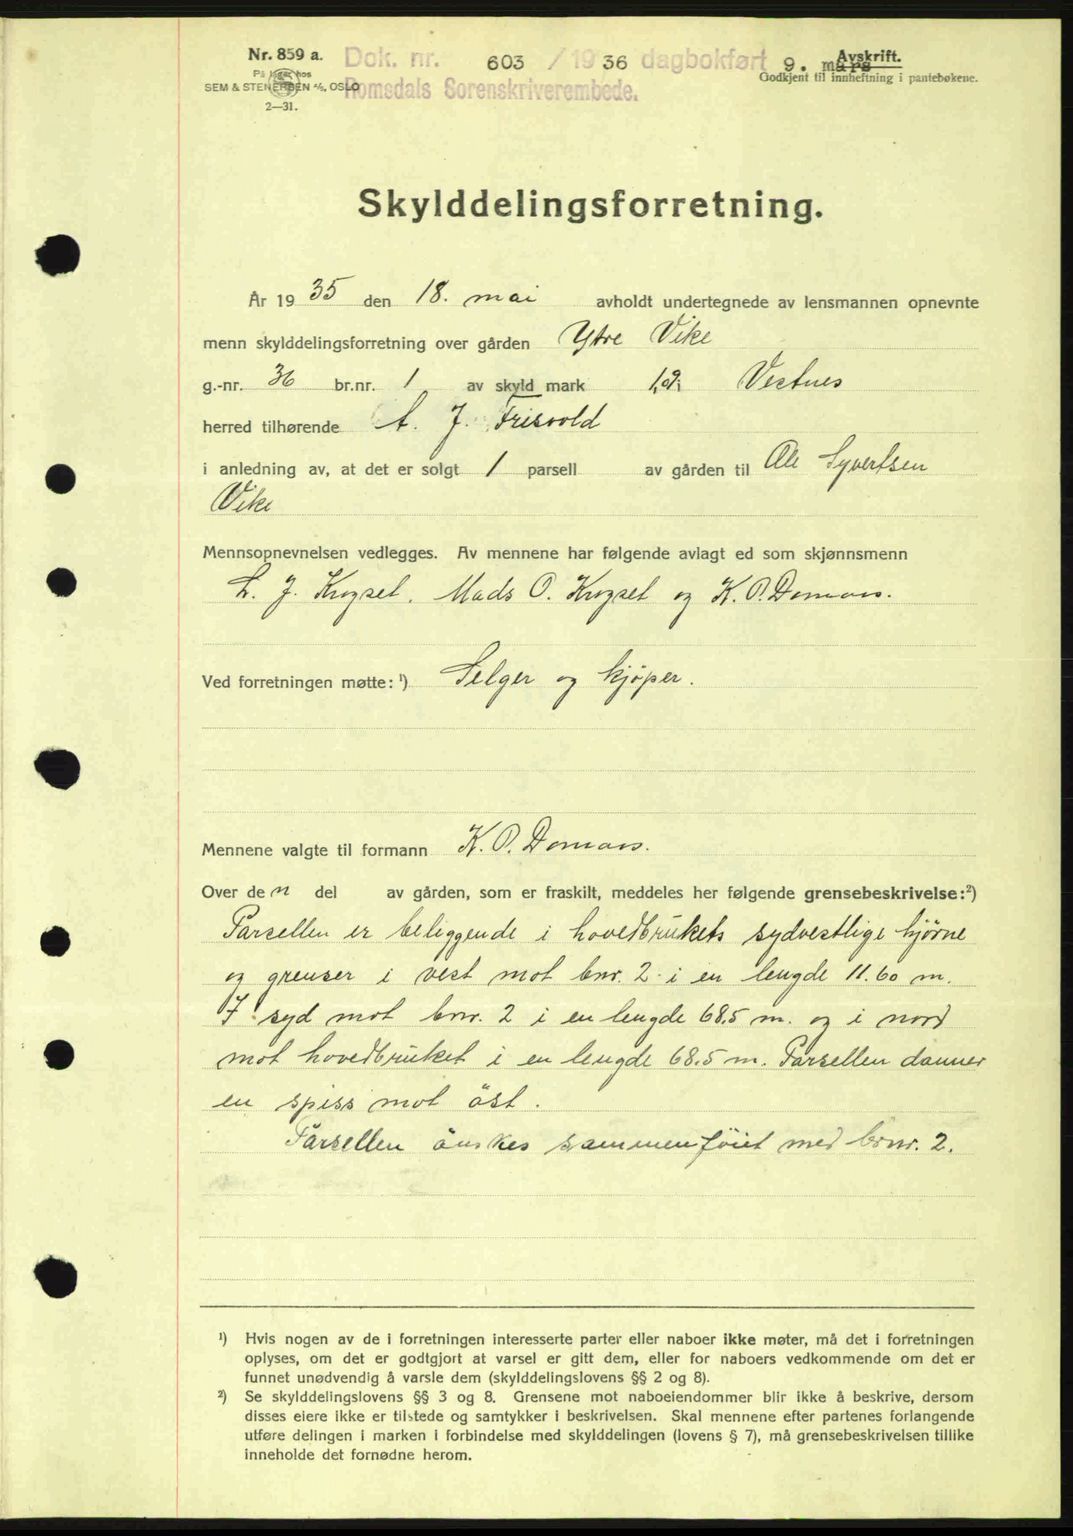 Nr. 859 a.
På lager hos
SEM & STENERSEN A/S, OSLO
2—31.
Dok. nr. 603 / 1936 dagbokført 9. mars
Romsdals Sorenskriverembede.
Avskrift.
Godkjent til innheftning i pantebøkene.
Skylddelingsforretning.
År 1935 den 18. mai avholdt undertegnede av lensmannen opnevnte
menn skylddelingsforretning over gården Ytre Vike
g.-nr. 36 br.nr. 1 av skyld mark Vestnes
herred tilhørende A. J. Frisvold
i anledning av, at det er solgt 1 parsell av gården til Ole Syvertsen
Vike
Mennsopnevnelsen vedlegges. Av mennene har følgende avlagt ed som skjønnsmenn
L. J. Krogset. Mads O. Krogset og K. O. Domaas.
Ved forretningen møtte: ¹) Selger og kjøper.
Mennene valgte til formann K. O. Domaas.
Over den del av gården, som er fraskilt, meddeles her følgende grensebeskrivelse: ²)
Parsellen er beliggende i hovedbrukets sydvestlige hjørne
og grenser i vest mot bnr. 2 i en lengde 11.60 m.
I syd mot bnr. 2 i en lengde 68.5 m. og i nord
mot hovedbruket i en lengde 68.5 m. Parsellen danner
en spiss mot öst.
Parsellen önskes sammenföiet med brnr. 2.
¹) Hvis nogen av de i forretningen interesserte parter eller naboer ikke møter, må det i forretningen
oplyses, om det er godtgjort at varsel er gitt dem, eller for naboers vedkommende om det er
funnet unødvendig å varsle dem (skylddelingslovens §§ 2 og 8).
²) Se skylddelingslovens §§ 3 og 8. Grensene mot naboeiendommer blir ikke å beskrive, dersom
disses eiere ikke er tilstede og samtykker i beskrivelsen. Skal mennene efter partenes forlangende
utføre delingen i marken i forbindelse med skylddelingen (lovens § 7), må grensebeskrivelsen tillike
inneholde det fornødne herom.